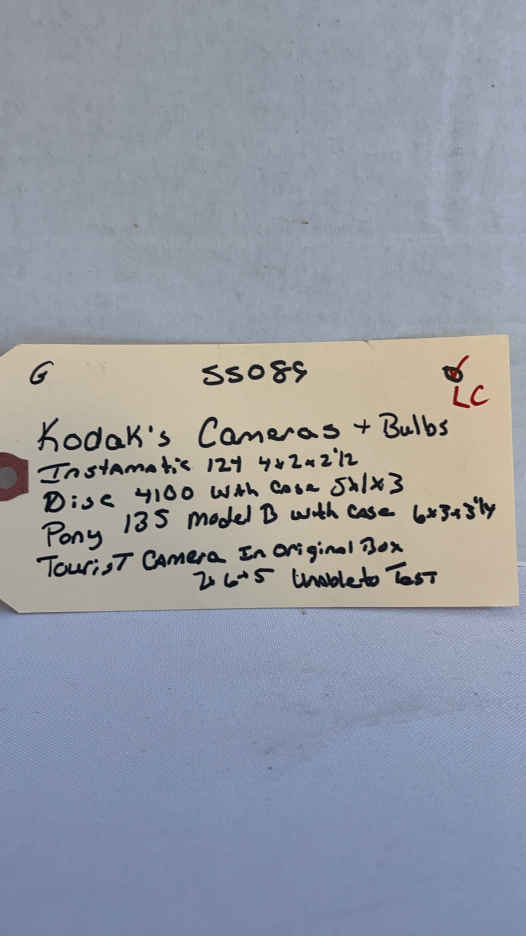 G 55089
LC
Kodak's Cameras + Bulbs
Instamatic 124 4x2x2 1/2
Disc 4100 with case 5x1x3
Pony 135 Model B with case 6x3x3 1/4
Tourist Camera In original Box
2x6x5 Unable to Test